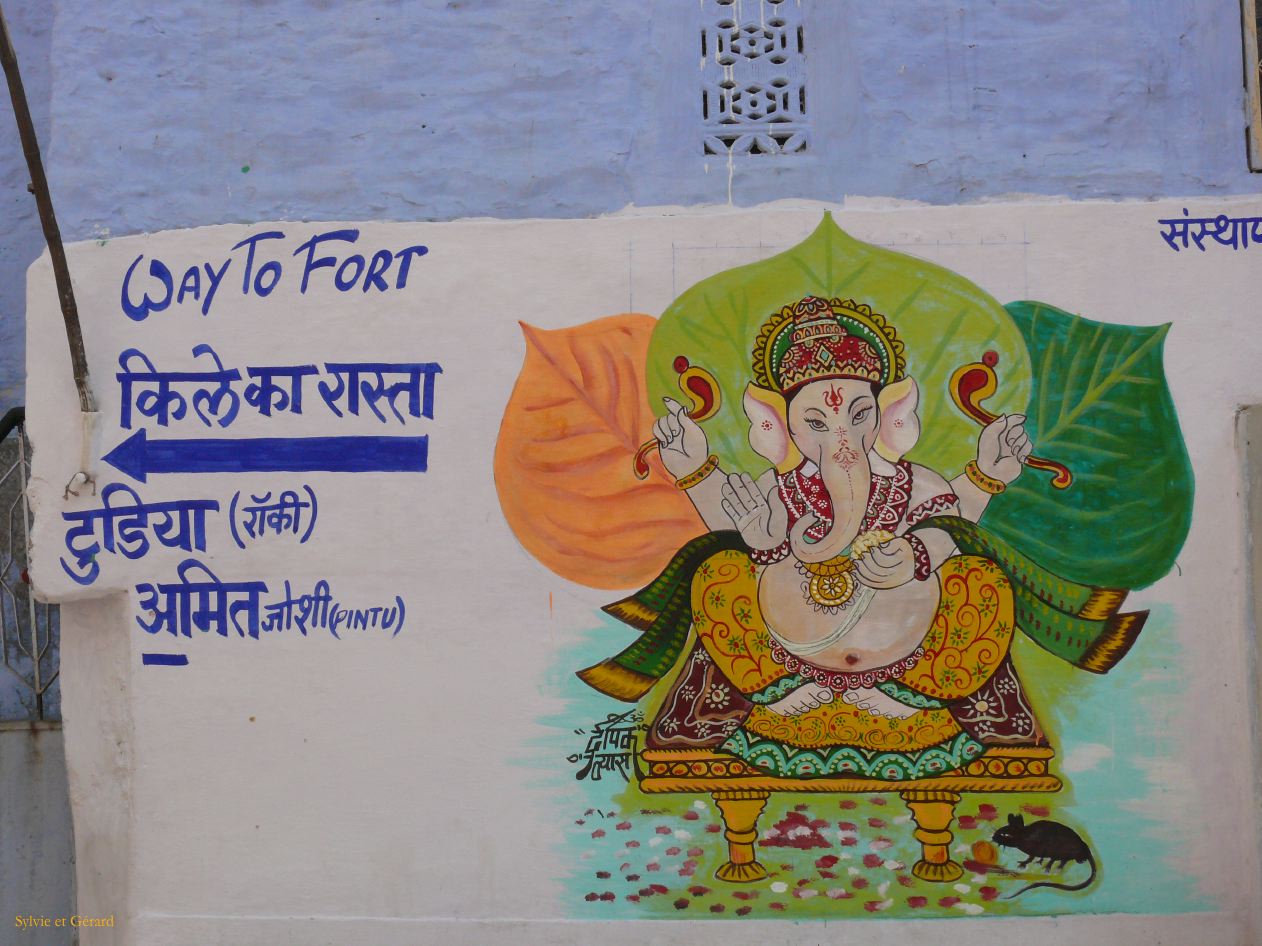 WAY TO FORT
किले का रास्ता
टुडिया (रॉकी)
अमित जोशी (PINTU)
संस्थाप
"दीपक
व्यास"
Sylvie et Gérard